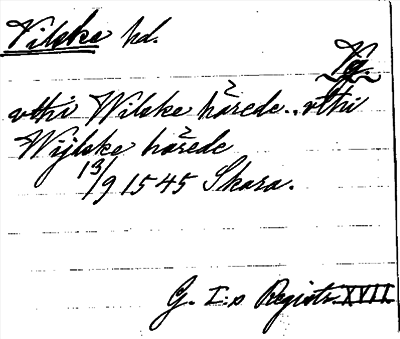 Vilske hd.
Vg.
vthi Wilske härede.. vthi
Wijlske härede
13/9 1545 Skara.
G. I:s Registr. XVII